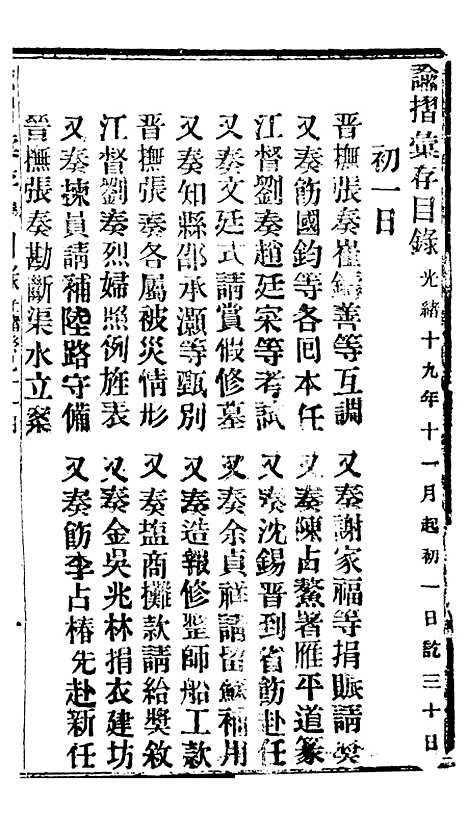 諭摺彙存目錄 光緒十九年十一月起初一日訖三十日
初一日
晉撫張奏崔鑄善等互調 又奏謝家福等捐賑請獎
又奏飭國鈞等各回本任 又奏陳占鰲署雁平道篆
江督劉奏趙廷宋等考試 又奏沈錫晉到省飭赴任
又奏文廷式請賞假修墓 又奏余貞祥請留蘇補用
又奏知縣邵承灝等甄別 又奏造報修整師船工款
晉撫張奏各屬被災情形 又奏塩商攤款請給獎敘
江督劉奏烈婦照例旌表 又奏金吳兆林捐衣建坊
又奏揀員請補陸路守備 又奏飭李占椿先赴新任
晉撫張奏勘斷渠水立案